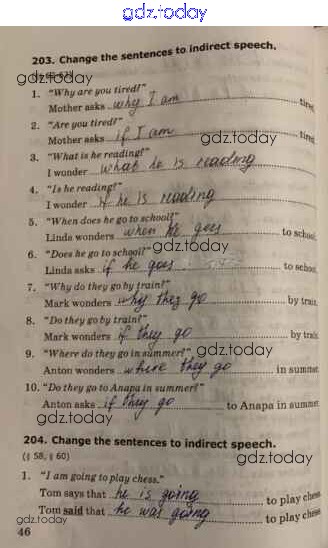 gdz.today
203. Change the sentences to indirect speech.
gdz.today
1. "Why are you tired?"
Mother asks why I am tired
2. "Are you tired?"
Mother asks if I am tired
gdz.today
3. "What is he reading?"
I wonder what he is reading
gdz.today
4. "Is he reading?"
I wonder if he is reading
5. "When does he go to school?"
Linda wonders when he goes to school
gdz.today
6. "Does he go to school?"
Linda asks if he goes to school
gdz.today
7. "Why do they go by train?"
Mark wonders why they go by train
8. "Do they go by train?"
gdz.today
Mark wonders if they go by train
9. "Where do they go in summer?"
gdz.today
Anton wonders where they go in summer
10. "Do they go to Anapa in summer?"
Anton asks if they go to Anapa in summer
gdz.today
204. Change the sentences to indirect speech.
(§ 58, § 60)
gdz.today
1. "I am going to play chess."
Tom says that he is going to play chess
Tom said that he was going to play chess
gdz.today
gdz.today
46